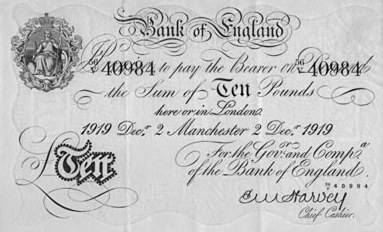 Bank of England
56/V 40984 to pay the Bearer on Demand 56/V 40984
the Sum of Ten Pounds
here or in London
1919 Decr. 2 Manchester 2 Decr. 1919
For the Govr. and Compa.
of the Bank of England.
40984
£Ten
E M Harvey
Chief Cashier.